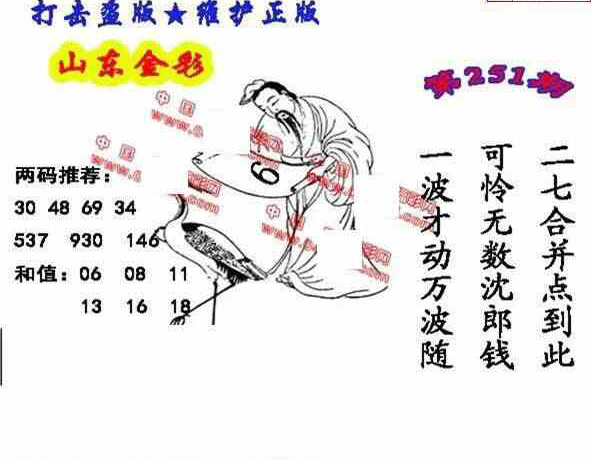 打击盗版★维护正版
山东金彩
第251期
两码推荐:
30 48 69 34
537 930 146
和值: 06 08 11
13 16 18
6
二七合并点到此
可怜无数沈郎钱
一波才动万波随
中国
www.
中国
www.
中国
www.
.com
.com